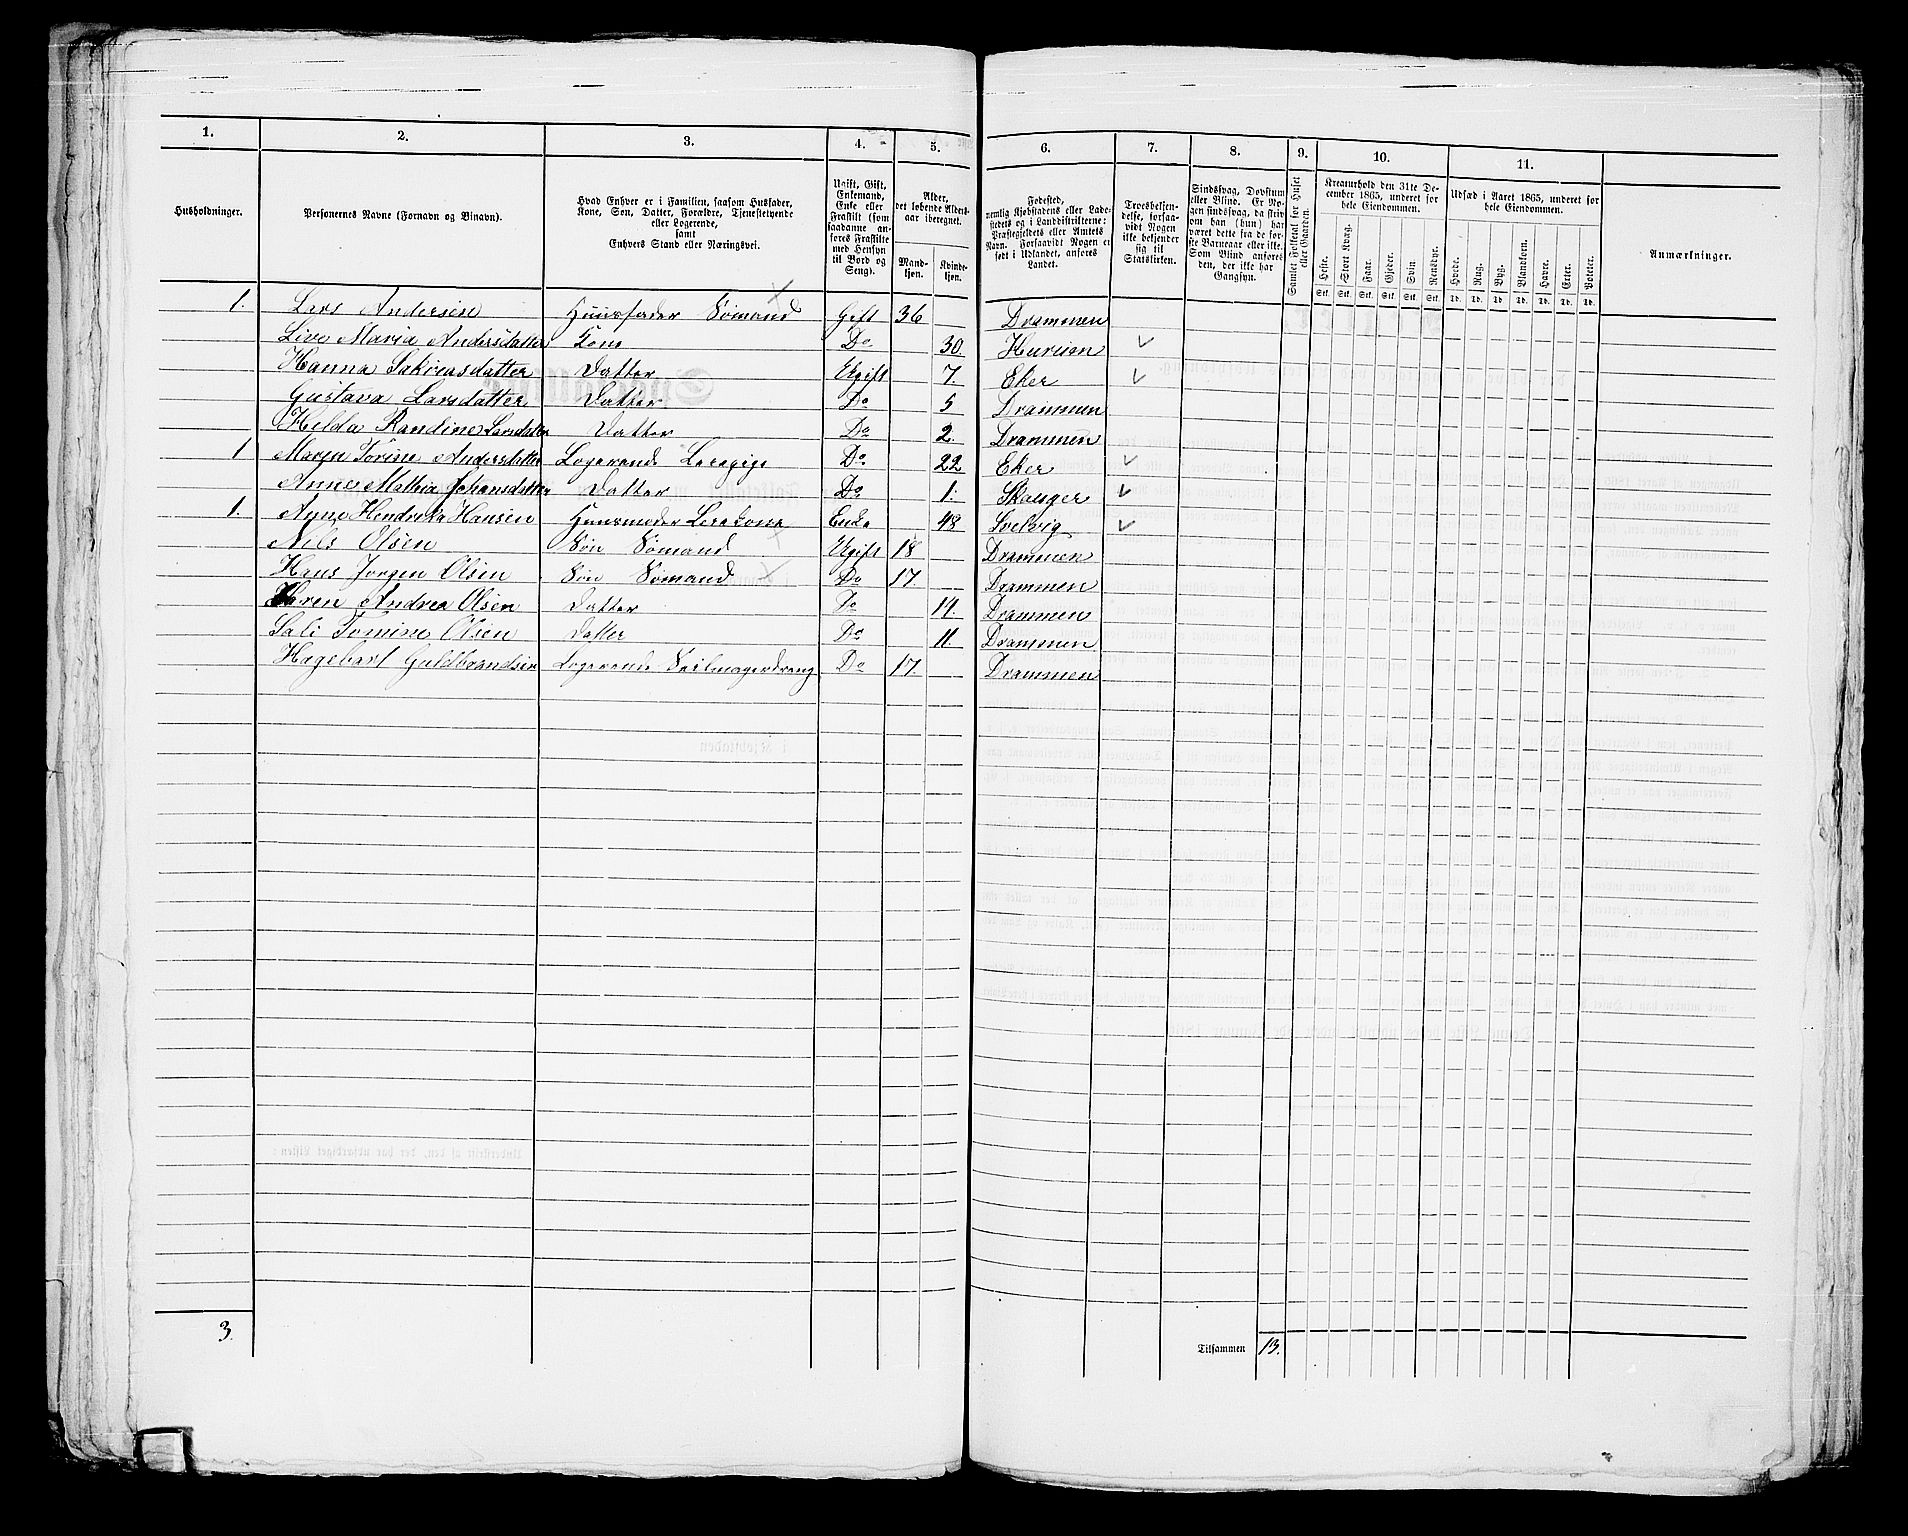 1. 2. 3. 4. 5. 6. 7. 8. 9. 10. 11.
Husholdninger.
Personernes Navne (Fornavn og Tilnavn).
Hvad Enhver er i Familien, saasom Husfader, Kone, Søn, Datter, Forældre, Tjenestetyende eller Logerende, samt Enhvers Stand eller Næringsvei.
Ugift, Gift, Enkemand, Enke eller Fraskilt (som saadanne anføres Fraskilte med Hensyn til Bord og Seng).
Alder, det løbende Aldersaar iberegnet.
Mandkjøn. Kvindekjøn.
Fødested, nemlig Kjøbstadens eller Ladestedets og i Landdistrikterne: Præstegjeldets eller Amtets Navn. Forsaavidt Nogen er født i Udlandet, anføres Landet.
Troesbekjendelse, forsaavidt Nogen ikke bekjender sig til Statskirken.
Sindssvag, Døvstum eller Blind. Er Nogen sindssvag, da skriv om han (hun) har været dette fra de første Barneaar eller ikke. Som Blind anføres den, der ikke har Gangsyn.
Samlet Folketal for Huset eller Gaarden.
Kreaturhold den 31te December 1865, underet for hele Eiendommen.
Heste. Stort Kvæg. Faar. Gjeder. Svin. Rensdyr.
Stk. Stk. Stk. Stk. Stk. Stk.
Udsæd i Aaret 1865, underet for hele Eiendommen.
Hvede. Rug. Byg. Blandkorn. Havre. Erter. Poteter.
Td. Td. Td. Td. Td. Td. Td.
Anmærkninger.
1. Lars Andersen Huusfader Sømand Gift 36 Drammen
Live Maria Andersdatter Kone Do 30. Hurum
Hanna Sakreasdatter Datter Ugift 7. Eker
Gustava Larsdatter Datter Do 5 Drammen
Helda Randine Larsdatter Datter Do 2. Drammen
1 Maren Torine Andersdatter Logerende Do 22 Eker
Anne Mathia Johansdatter Datter Do 1. Skauger
1. Anne Hendrika Hansen Huusmoder Enke 48 Svelvig
Nils Olsen Søn Sømand Ugift 18 Drammen
Hans Jørgen Olsen Søn Sømand Do 17 Drammen
Karen Andrea Olsen Datter Do 14. Drammen
Sali Tomine Olsen Datter Do 11 Drammen
Hagebart Guldbrandsen Logerende Seilmagerdreng Do 17. Drammen
3.
Tilsammen 13.